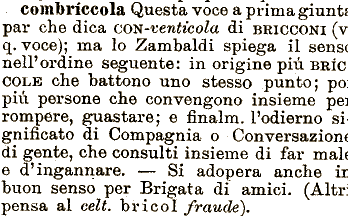 combríccola Questa voce a prima giunta
par che dica CON-venticola di BRICCONI (v.
q. voce); ma lo Zambaldi spiega il senso
nell'ordine seguente: in origine più BRÍC-
COLE che battono uno stesso punto; poi
più persone che convengono insieme per
rompere, guastare; e finalm. l'odierno si-
gnificato di Compagnia o Conversazione
di gente, che consulti insieme di far male
e d'ingannare. — Si adopera anche in
buon senso per Brigata di amici. (Altri
pensa al celt. bricol fraude).